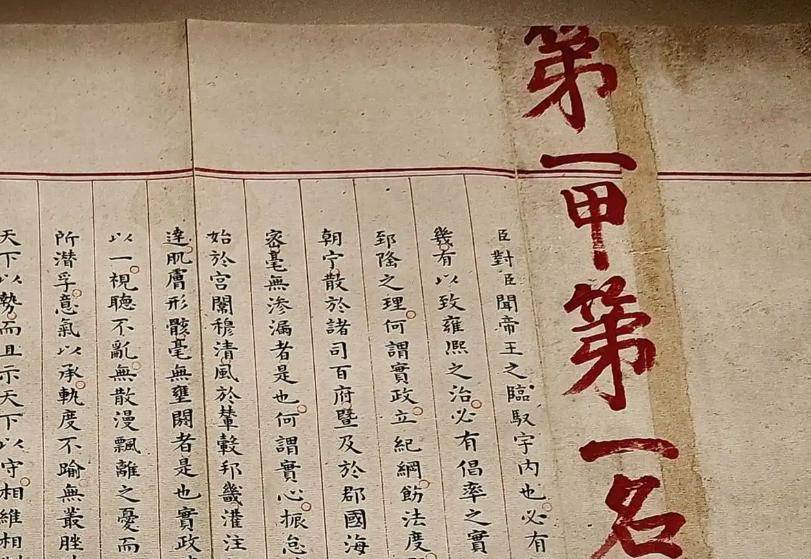 第一甲第一名
臣對臣聞帝王之臨馭宇內也必有
幾有以致雍熙之治必有倡率之實
郅隆之理何謂實政立紀綱飭法度
朝宁散於諸司百府暨及於郡國海
密毫無滲漏者是也何謂實心振怠
始於宮闈穆清風於輦轂邦畿灌注
達肌膚形骸毫無壅閼者是也實政
以一視聽不亂無散漫飄離之憂而
所潛孚意氣以承軌度不踰無叢脞
天下以勢而且示天下以守相維相